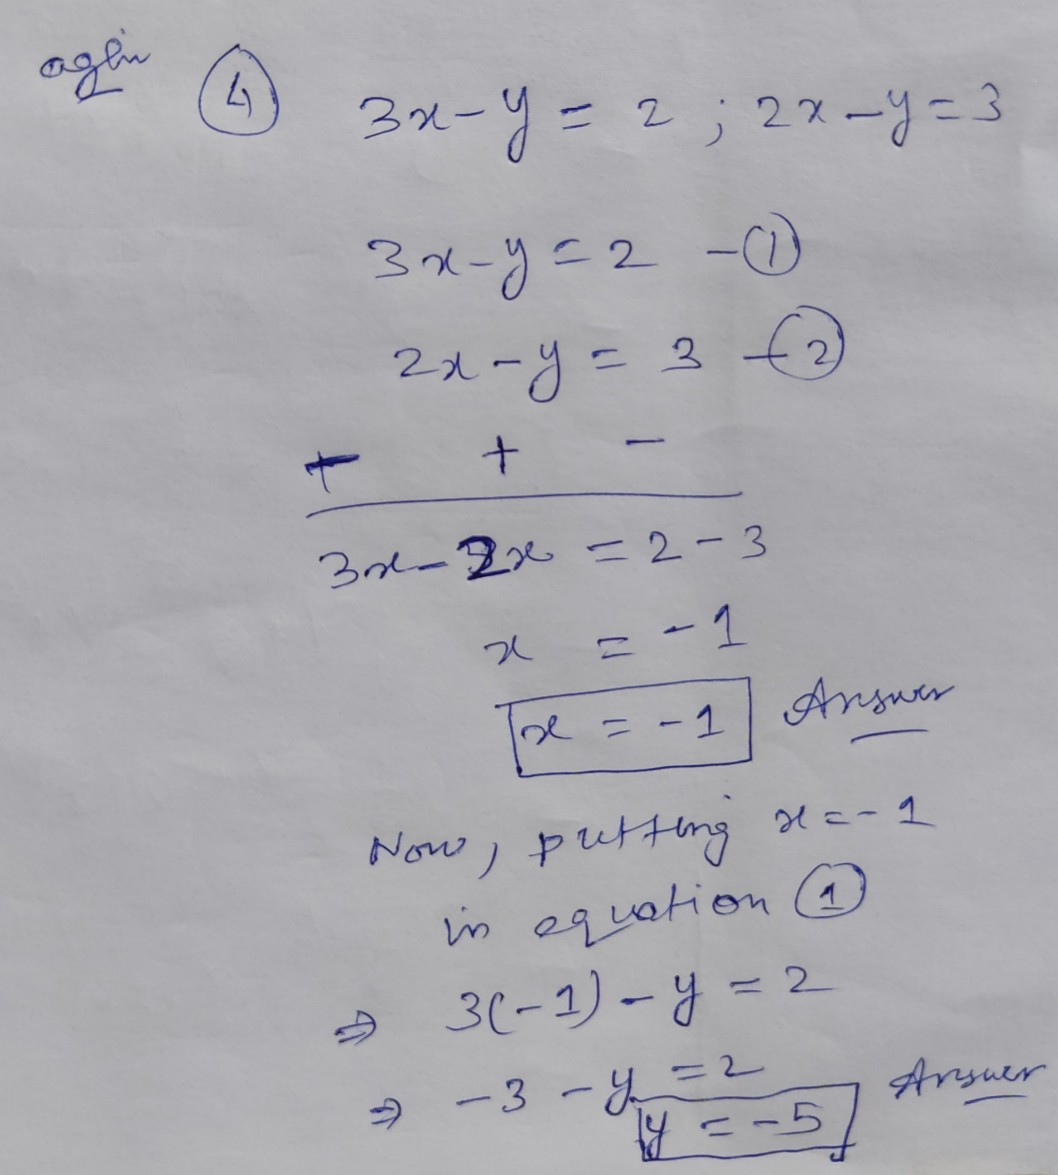 ④ 3x - y = 2 ; 2x - y = 3
3x - y = 2 - ①
2x - y = 3 - ②
- + -
3x - 2x = 2 - 3
x = -1
x = -1 Answer
Now, putting x = -1
in equation ①
⇒ 3(-1) - y = 2
⇒ -3 - y = 2
y = -5 Answer